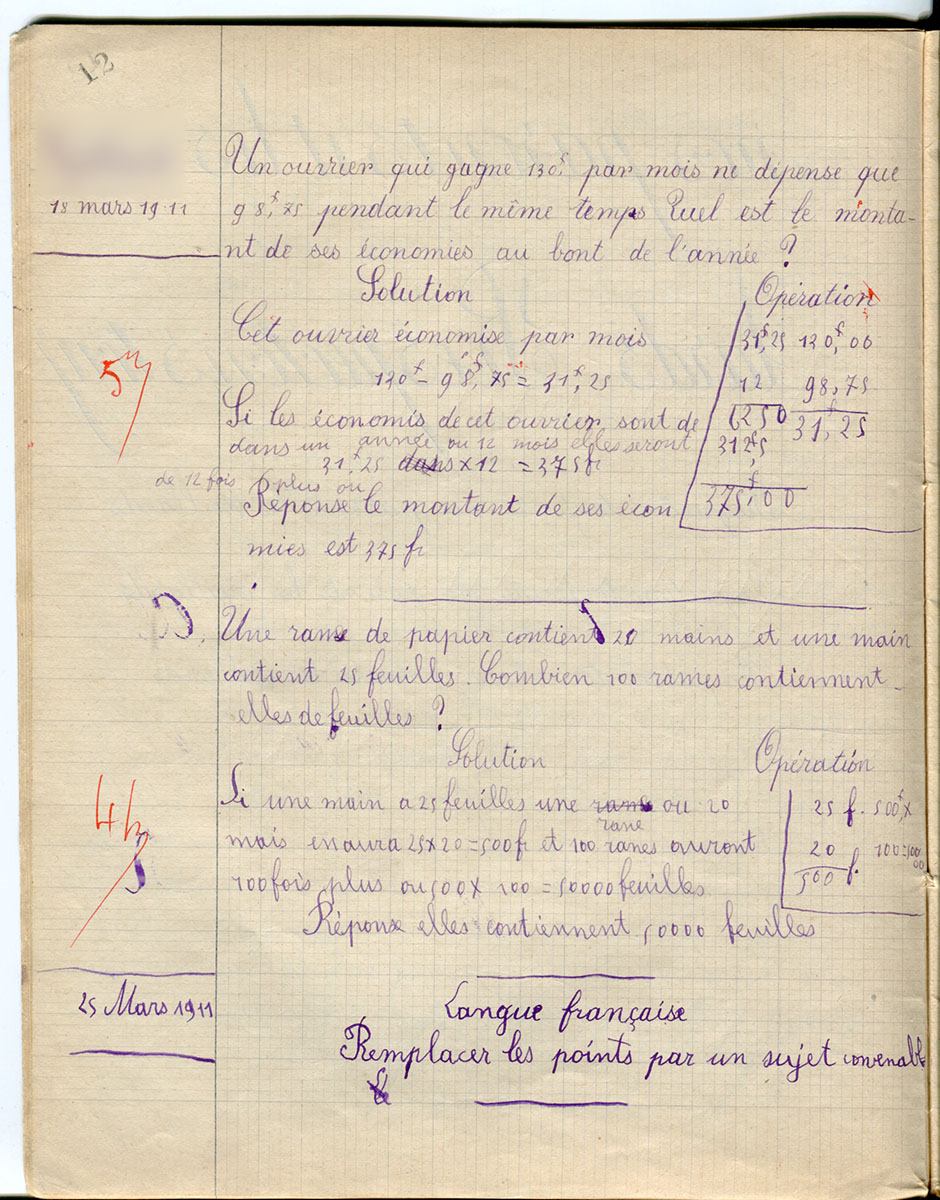 12
18 mars 1911
Un ouvrier qui gagne 130f. par mois ne dépense que
98f,75 pendant le même temps Quel est le monta-
nt de ses économies au bont de l'année ?
Solution
Opération
Cet ouvrier économise par mois
130f - 98f,75 = 31f,25
31f,25 130f,00
12 98,75
6250 31f,25
312f5
375f,00
5
Si les économis de cet ouvrier sont de
dans un année ou 12 mois elles seront
31f,25 dans x 12 = 375f
de 12 fois plus ou
Réponse le montant de ses écon
mies est 375 fr
Une rame de papier contient 20 mains et une main
contient 25 feuilles. Combien 100 rames contiennent-
elles de feuilles ?
Solution
Opération
Si une main a 25 feuilles une rame ou 20
rane
mais en aura 25x20=500f et 100 ranes auront
100 fois plus ou 500 x 100 = 50000 feuilles
Réponse elles contiennent 50000 feuilles
25 f. 500f x
20 100=500
00
500 f.
25 Mars 1911
Langue française
Remplacer les points par un sujet convenabl